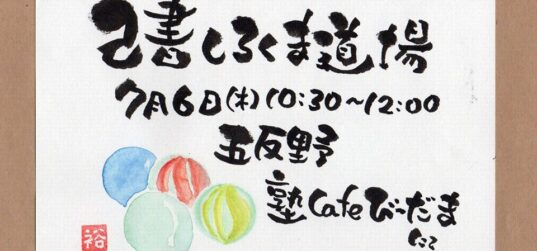 己書しろくま道場
7月6日(木)10:30〜12:00
五反野
塾Cafeびーだま
にて
裕